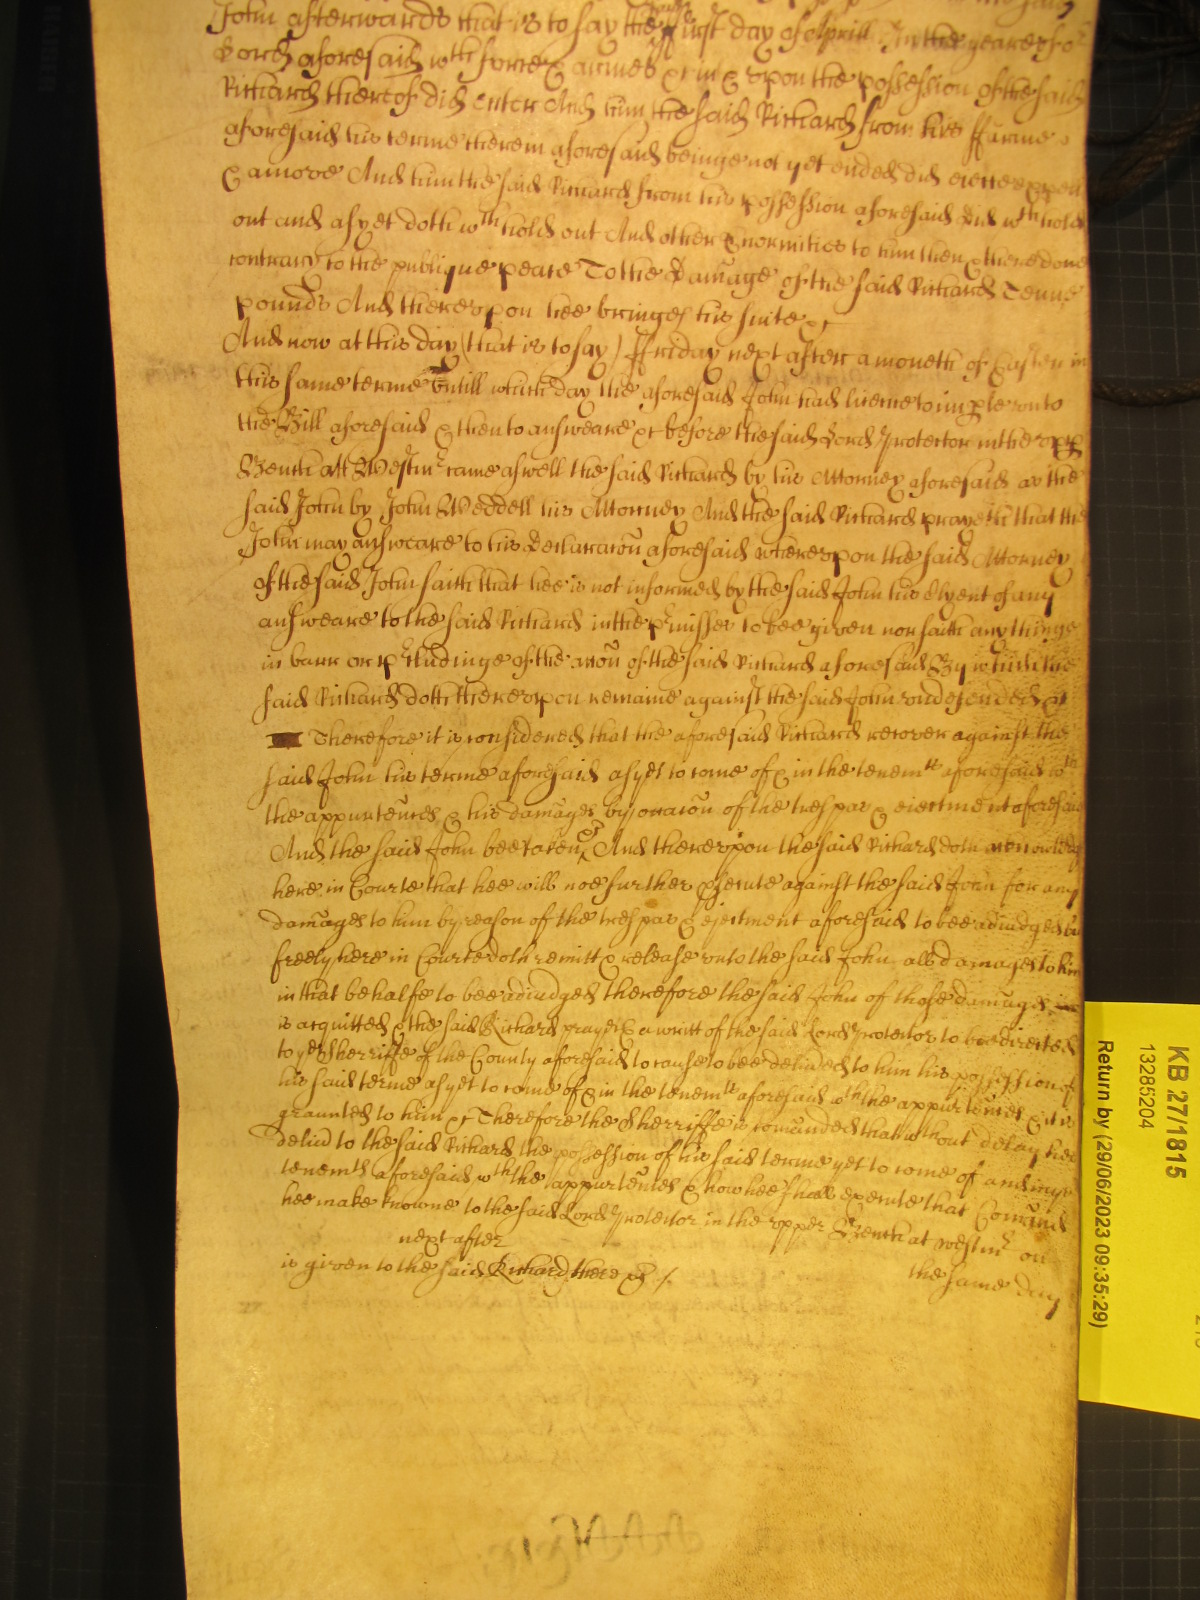 John afterwards that is to say the first day of Aprill In the yeare of or
Lord aforesaid wth force & armes &c in & vpon the possession of the said
Richard thereof did enter And him the said Richard from his ffarme
aforesaid his terme therein aforesaid beinge not yet ended did eiecte expell
& amove And him the said Richard from his possession aforesaid did wth hold
out and as yet doth wth hold out And other Enormities to him then & there done
contrary to the publique peace To the Damage of the said Richard Tenne
pounds And therevpon hee bringes his suite &c
And now at this day (that is to say) ffriday next after a moneth of Easter in
this same terme Vntill which day the aforesaid John had licence to imple vnto
the Bill aforesaid & then to answeare &c before the said Lord Protector in the vpper
Bench att Westmr came aswell the said Richard by his Attorney aforesaid as the
said John by John Weddell his Attorney And the said Richard prayeth that the
John may answeare to his declaracoũ aforesaid wherevpon the said Attorney
of the said John saith that hee is not informed by the said John his Clyent of any
answeare to the said Richard in the prmisses to bee given nor saith any thinge
in barr or prcludinge of the accoũ of the said Richard aforesaid By which the
said Richard doth therevpon remaine against the said John vndefended &c
Therefore it is considered that the aforesaid Richard recover against the
said John his terme aforesaid as yet to come of & in the tenemts aforesaid wth
the appurteñces & his damages by occacoũ of the trespas & eiectment aforesaid
And the said John bee taken &c And therevpon the said Richard doth acknowledg
here in Courte that hee will noe further psecute against the said John for any
damages to him by reason of the trespas & ejectment aforesaid to bee adiudged but
freely here in Courte doth remitt & release vnto the said John all damages to him
in that behalfe to bee adiudged therefore the said John of those damages
is acquitted & the said Richard prayeth a writt of the said Lord Protector to bee directed
to ye Sherriffe of the County aforesaid to cause to bee delivred to him his possession of
his said terme as yet to come of & in the tenemts aforesaid wth the appurteñces & it is
graunted to him &c Therefore the Sherriffe is comãnded that wthout delay hee
deliv̄ to the said Richard the possession of his said terme yet to come of and in ye
tenemts aforesaid wth the appurteñces & how hee shall execute that Comãnd
hee make knowne to the said Lord Protector in the vpper Bench at westmr on
next after the same day
is given to the said Richard there &c /.
KB 27/1815
13285204
Return by (29/06/2023 09:35:29)